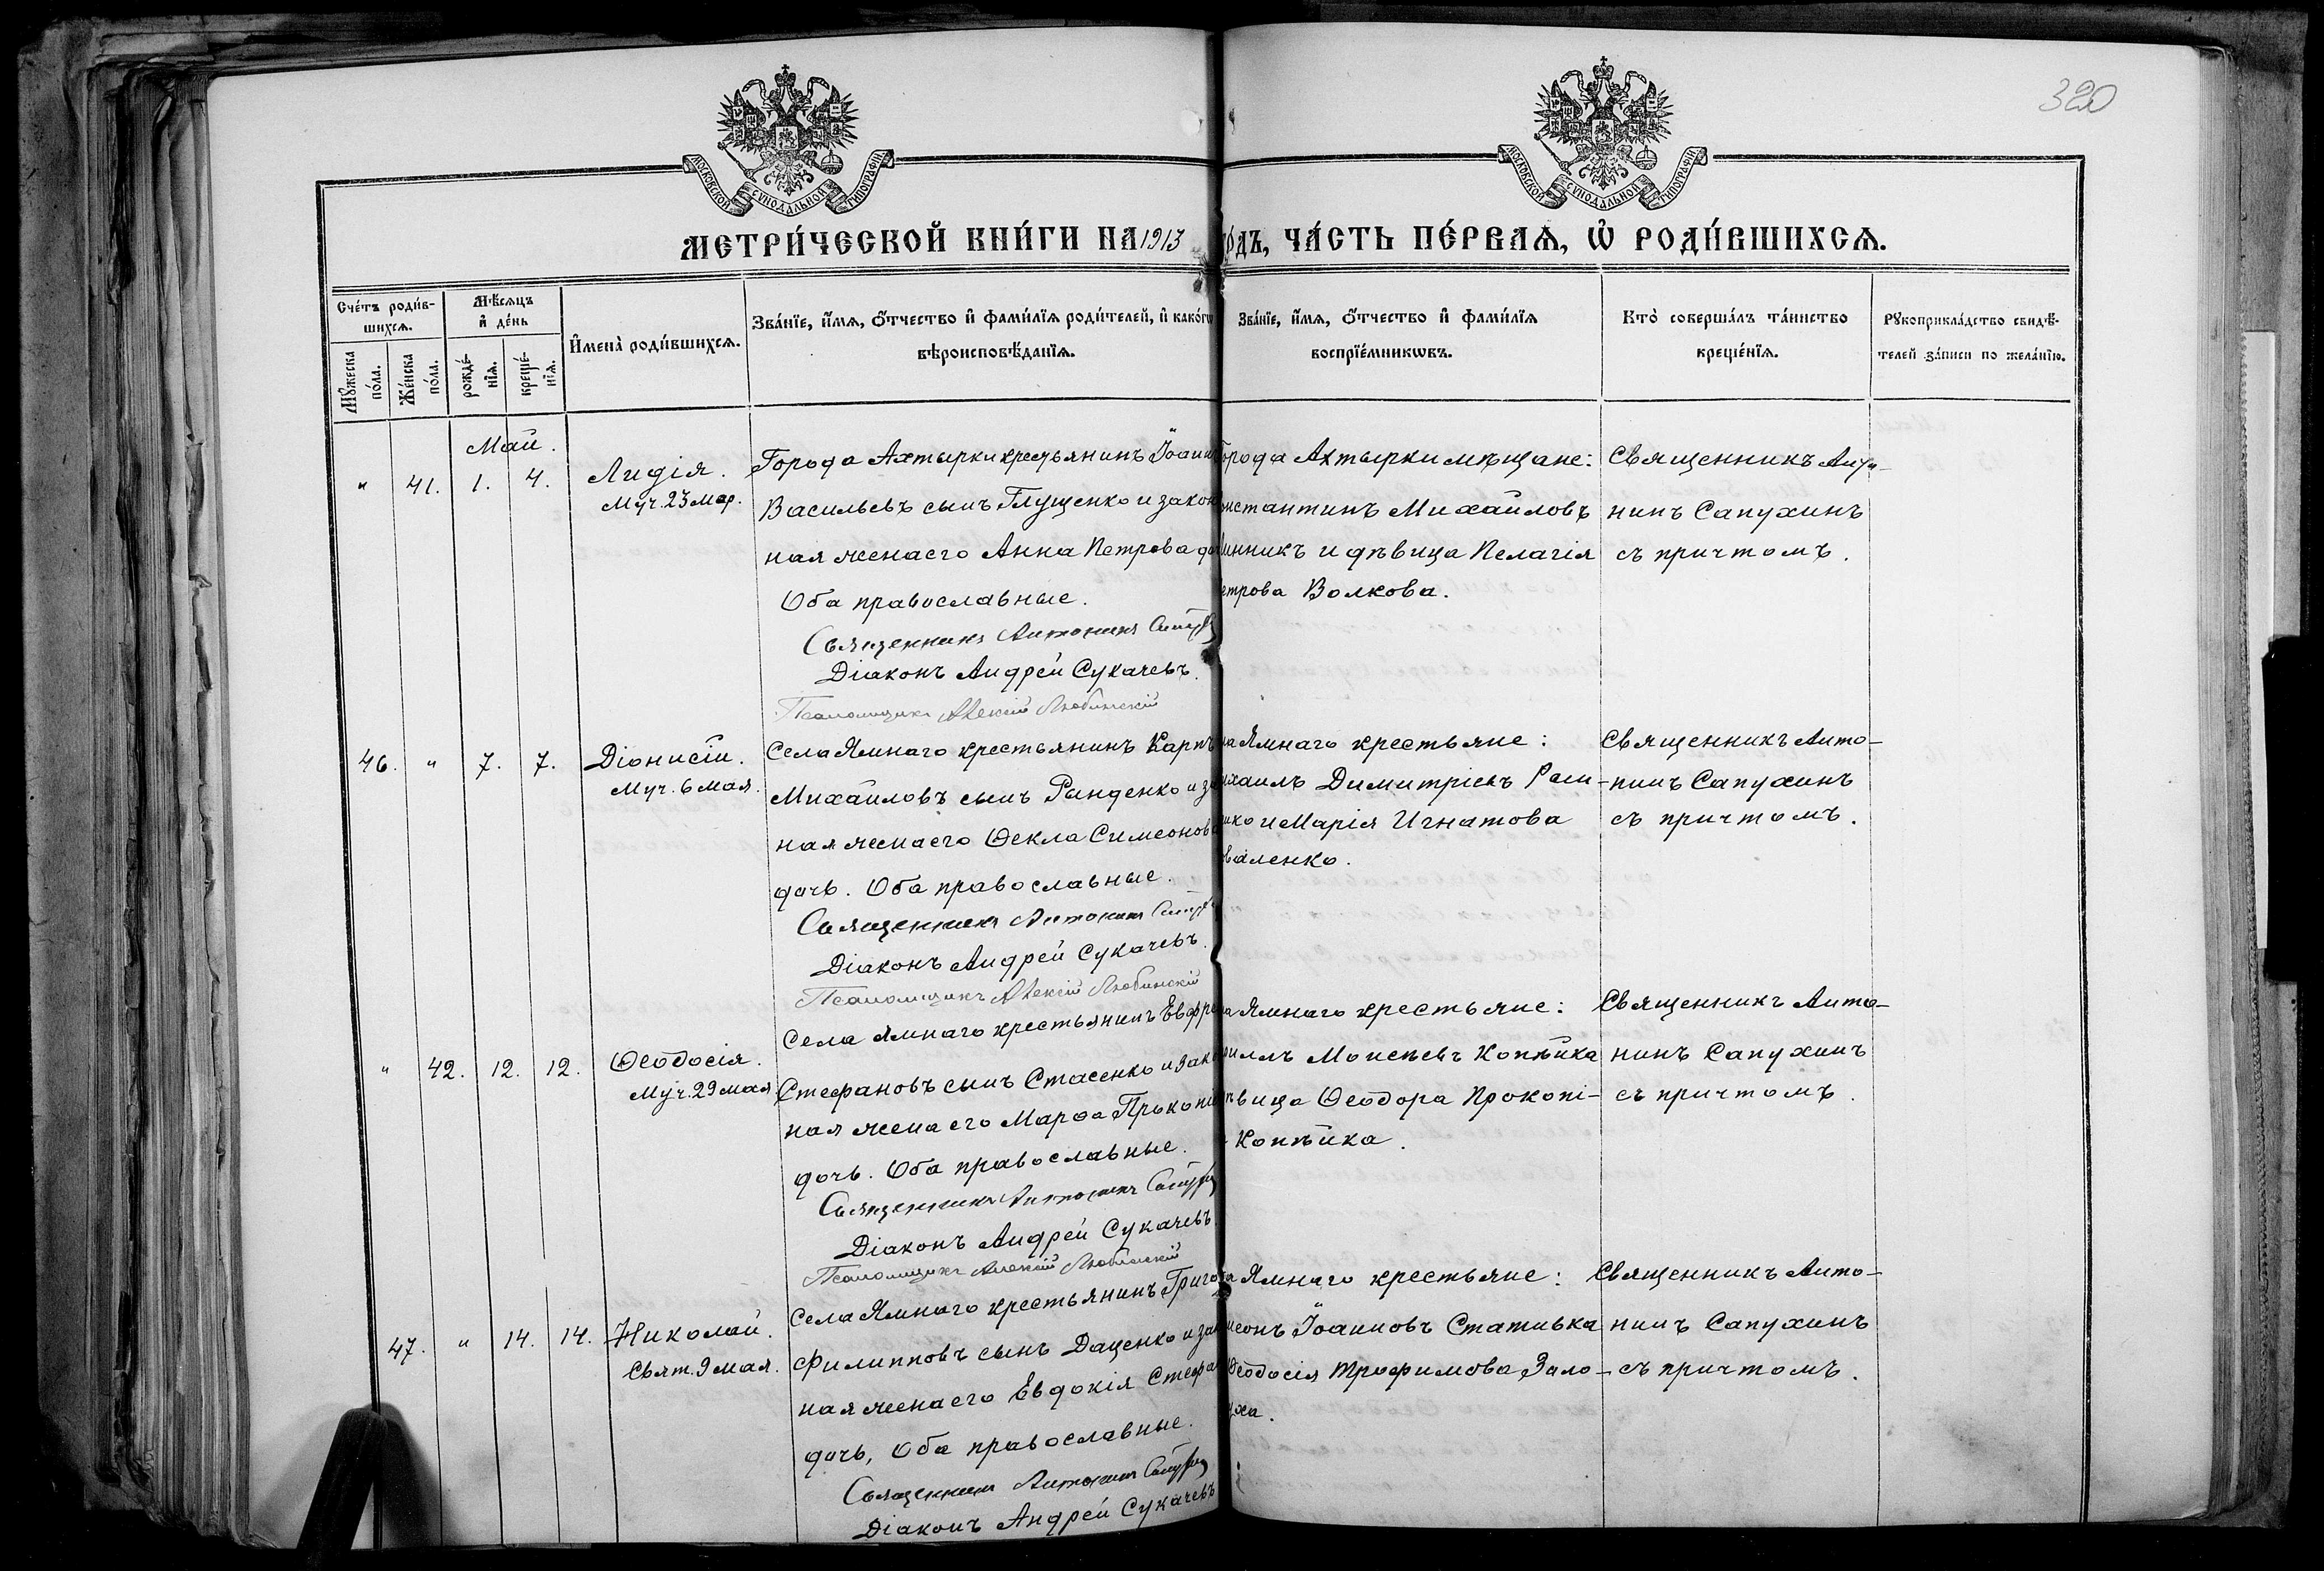 320
МОСКОВСКОЙ СѴНОДАЛЬНОЙ ТИПОГРАФІИ
МОСКОВСКОЙ СѴНОДАЛЬНОЙ ТИПОГРАФІИ
МЕТРИ́ЧЕСКОЙ КНИ́ГИ НА 1913
ГО́ДЪ, ЧА́СТЬ ПЕ́РВАѦ, Ѡ҆ РОДИ́ВШИХСѦ.
Сче́тъ роди́в-
шихсѧ.
Мꙋ́жеска по́ла.
Же́нска по́ла.
Мѣ́сѧцъ
и҆ де́нь
рожде́-нїѧ.
креще́-нїѧ.
И҆мена̀ роди́вшихсѧ.
Зва́нїе, и҆́мѧ, ѻ҆́тчество и҆ фами́лїѧ роди́телей, и҆ како́гѡ
вѣроисповѣ́данїѧ.
Зва́нїе, и҆́мѧ, ѻ҆́тчество и҆ фами́лїѧ
воспрїе́мникѡвъ.
Кто̀ соверша́лъ та́инство
креще́нїѧ.
Рꙋкоприкла́дство свидѣ́-
телей за́писи по жела́нїю.
Май.
" 41. 1. 4.
Лидія.
Муч. 23 мар.
Города Ахтырки крестьянинъ Іоанн
Васильевъ сынъ Глущенко и закон
ная жена его Анна Петрова до
Оба православные.
Священникъ Антонинъ
Діаконъ Андрей Сукачевъ.
Псаломщикъ Алексій Любинскій
орода Ахтырки мѣщане:
онстантинъ Михайловъ
инникъ и дѣвица Пелагія
етрова Волкова.
Священникъ Анто-
нинъ Сапухинъ
съ причтомъ.
46. " 7. 7.
Діонисій.
Муч. 6 мая.
Села Ямнаго крестьянинъ Карпъ
Михайловъ сынъ Рынденко и за
ная жена его Ѳекла Симеонова
дочь. Оба православные.
Священникъ Антонинъ
Діаконъ Андрей Сукачевъ.
Псаломщикъ Алексій Любинскій
ла Ямнаго крестьяне:
ихаилъ Димитріевъ
нко и Марія Игнатова
валенко.
Священникъ Анто-
нинъ Сапухинъ
съ причтомъ.
" 42. 12. 12.
Ѳеодосія.
Муч. 29 мая
Села Ямнаго крестьянинъ Евфре
Стефановъ сынъ Стасенко и зако
ная жена его Марѳа Прокопі
дочь. Оба православные.
Священникъ Антонинъ
Діаконъ Андрей Сукачевъ
Псаломщикъ Алексій Любинскій
ла Ямнаго крестьяне:
риллъ Моисеевъ Копѣйка
ѣвица Ѳеодора Прокопі-
Копѣйка.
Священникъ Анто-
нинъ Сапухинъ
съ причтомъ.
47. " 14. 14.
Николай.
Свят. 9 мая.
Села Ямнаго крестьянинъ Григо
Филипповъ сынъ Даценко и зак
ная жена его Евдокія Стефа
дочь, Оба православные.
Священникъ Антонинъ
Діаконъ Андрей Сукачевъ
ла Ямнаго крестьяне:
меонъ Іоанновъ Стативка
Ѳеодосія Трофимова Зало-
уха.
Священникъ Анто-
нинъ Сапухинъ
съ причтомъ.